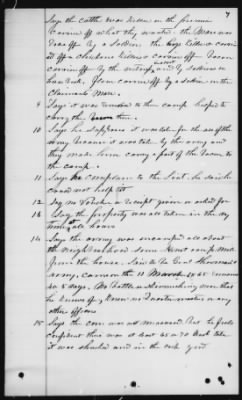 7
Says the cattle was driven on the
carried off what they wanted the Mare was
drove off by a Soldier. the hogs killed & carried
it off & chickens killed & carried off. Bacon
carried off by the and by soldiers on
horseback. Flour carried off by a soldier on the
Claimants Mare.
9 Says it was removed to their camp helped to
carry the there.
10 Says he supposes it was taken for the use of the
army because it was taken by the army and
they made him carry a part of the Bacon to
the camp.
11 Says he complained to the Lieut. he said he
could not help it
12 Say no Voucher or receipt given or asked for
14 Says the property was all taken in the day
all hours
14 Says the army was encamped all about
the neighborhood some camp
from the house. Said to be Genl Shermans
army, came on the 11 March 1865 remained
4 or 5 days. No battle or skirmishing near that
he knows of & knew no Quartermasters or any
other officers
15 Says the corn was not measured but he feels
confident there was at least 65 or 70
it was shucked and in the